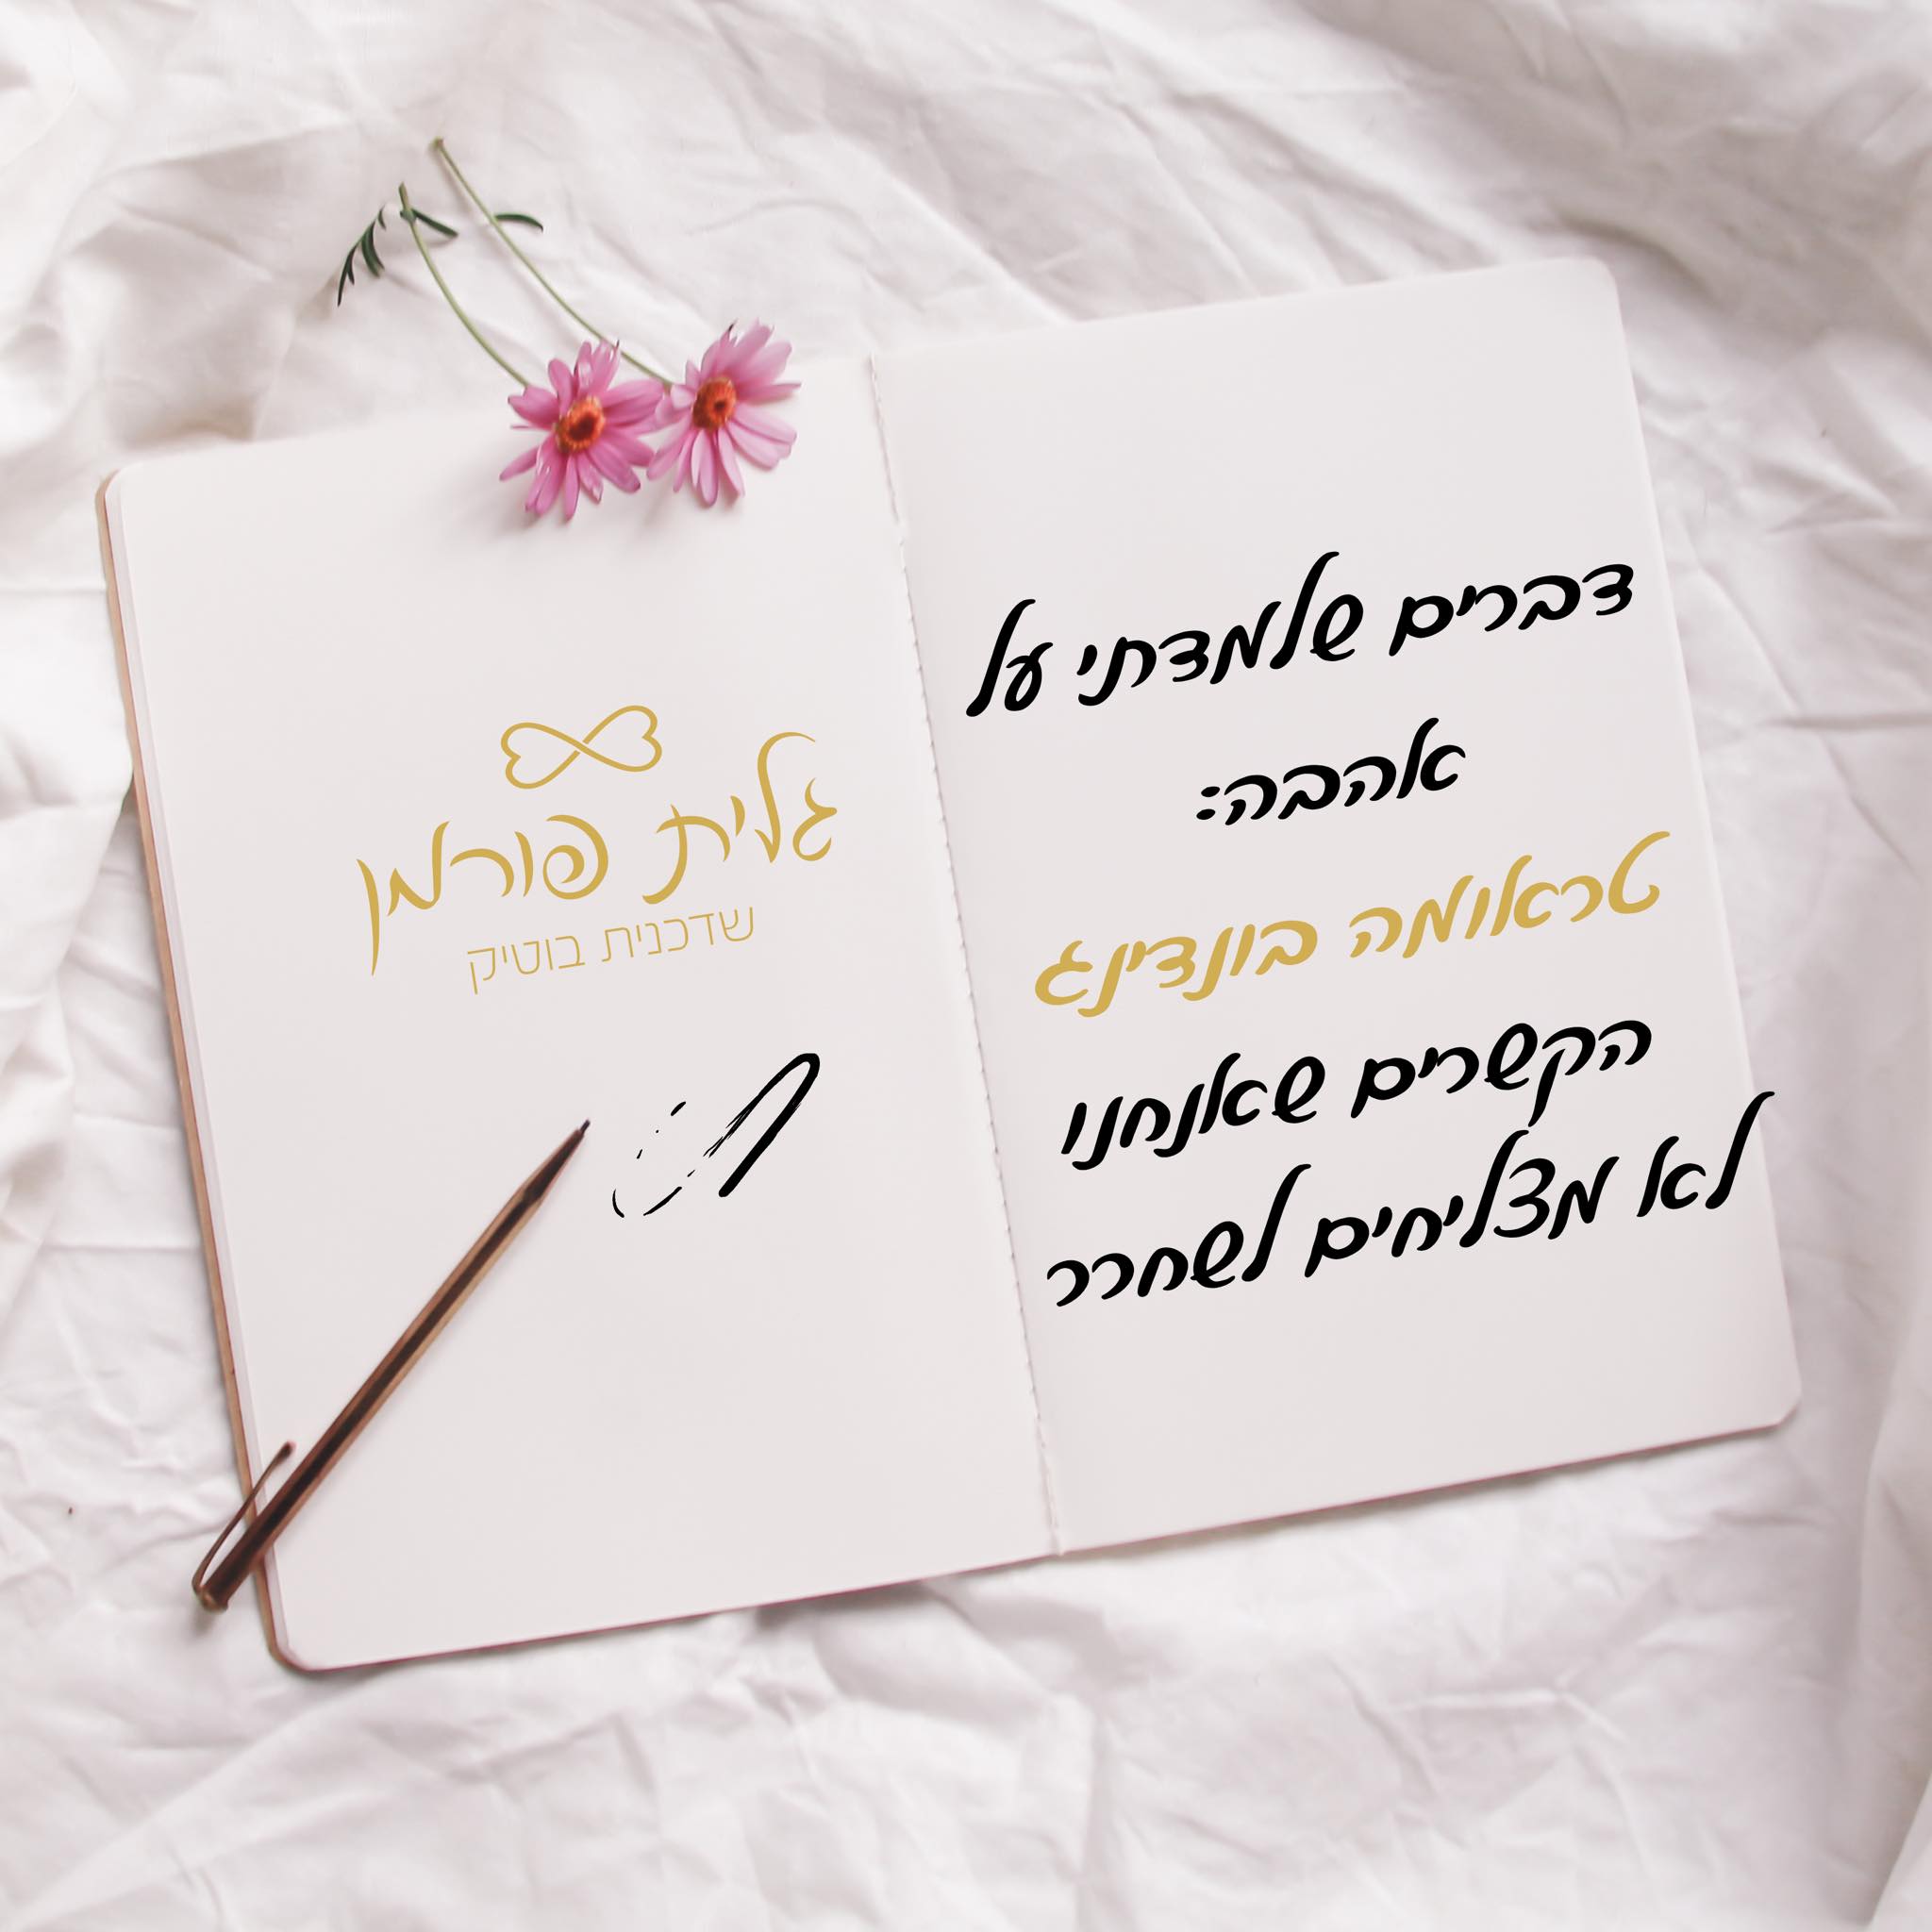 דברים שלמדתי על
אהבה:
טראומה בונדינג
הקשרים שאנחנו
לא מצליחים לשחרר
גלית פורמן
שדכנית בוטיק